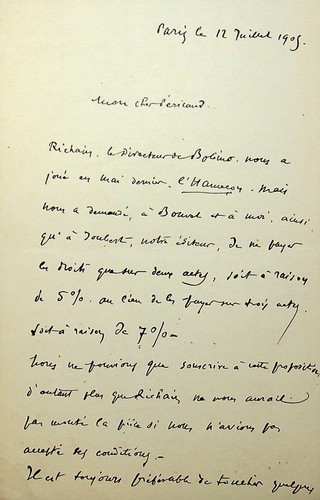 Paris le 12 Juillet 1905.
Mon cher Péricaud.
Richain, le Directeur de Bobino nous a
joué en mai dernier, l'Hanneçon. mais
nous a demandé, à Bouvet et à moi, ainsi
qu'à Joubert, notre éditeur, de ne payer
les droits que sur deux actes, soit à raison
de 5%. au lieu de les payer sur trois actes.
soit à raison de 7% –
nous ne pouvions que souscrire à cette proposition
d'autant plus que Richain ne nous aurait
pas monté la pièce si nous n'avions pas
accepté ses conditions –
Il est toujours préférable de toucher quelques